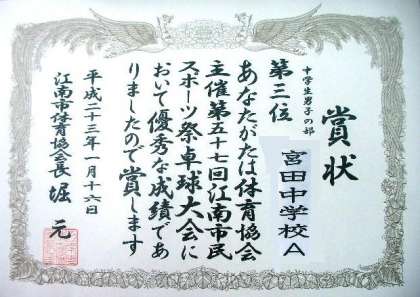 賞状
中学生男子の部
第三位
宮田中学校A
あなたがたは体育協会
主催第五十七回江南市民
スポーツ祭卓球大会に
おいて優秀な成績であ
りましたので賞します
平成二十三年一月十六日
江南市体育協会長 堀 元